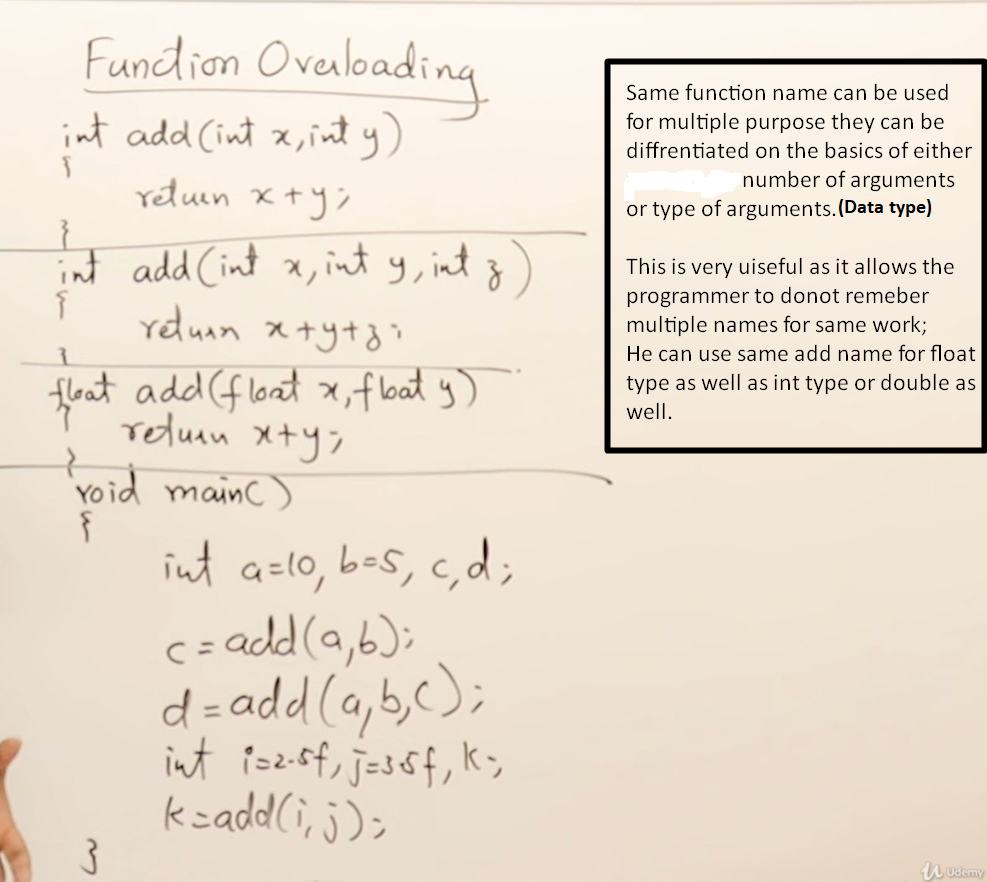 Function Overloading
int add(int x, int y)
{
return x+y;
}
int add(int x, int y, int z)
{
return x+y+z;
}
float add(float x, float y)
{
return x+y;
}
void main()
{
int a=10, b=5, c,d;
c=add(a,b);
d=add(a,b,c);
int i=2.5f, j=3.5f, k;
k=add(i,j);
}
Same function name can be used
for multiple purpose they can be
diffrentiated on the basics of either
number of arguments
or type of arguments.(Data type)
This is very uiseful as it allows the
programmer to donot remeber
multiple names for same work;
He can use same add name for float
type as well as int type or double as
well.
Udemy